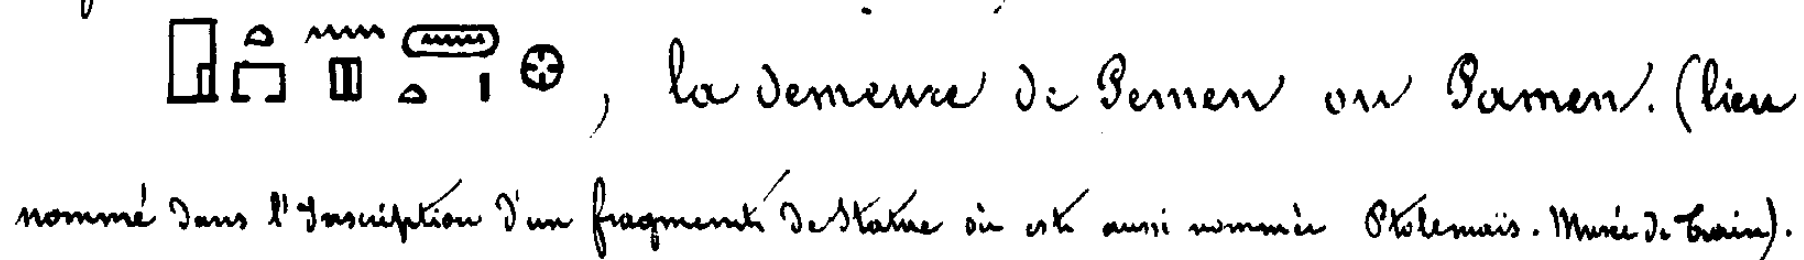 , la demeure de Pemen ou Pamen. (lieu
nommé dans l'Inscription d'un fragment de Statue où est aussi nommée Ptolemaïs. Musée de Turin).